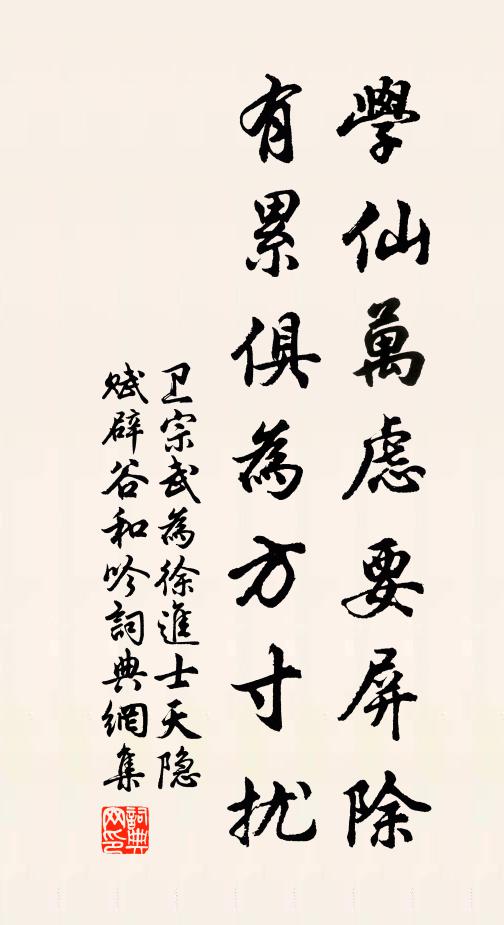 學仙萬慮要屏除
有累俱為方寸扰
卫宗武為徐進士天隐
赋辟谷和吟詞典網集
詞典網印